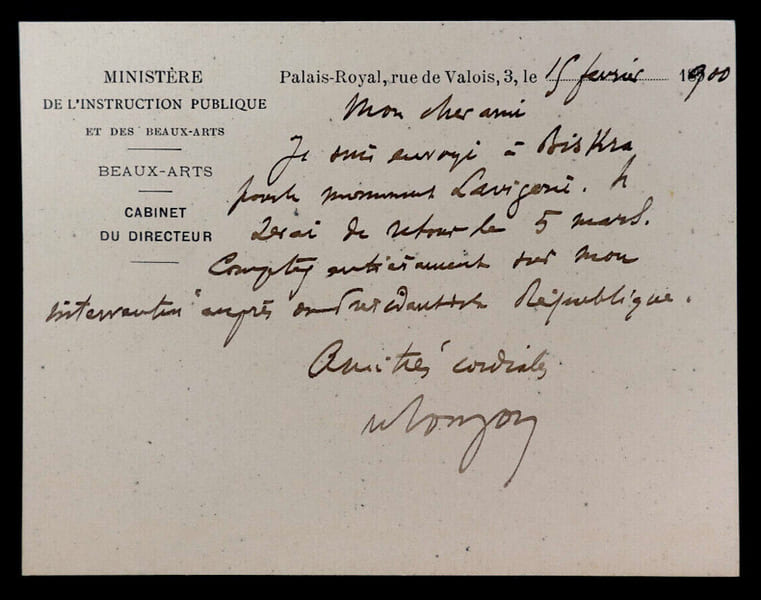 MINISTÈRE
DE L'INSTRUCTION PUBLIQUE
ET DES BEAUX-ARTS
BEAUX-ARTS
CABINET
DU DIRECTEUR
Palais-Royal, rue de Valois, 3, le 15 fevrier 1900
Mon cher ami
Je suis envoyé à Biskra
pour le monument Lavigerie. Je
serai de retour le 5 mars.
Comptez entièrement sur mon
intervention auprès du Président de la République.
Amitiés cordiales